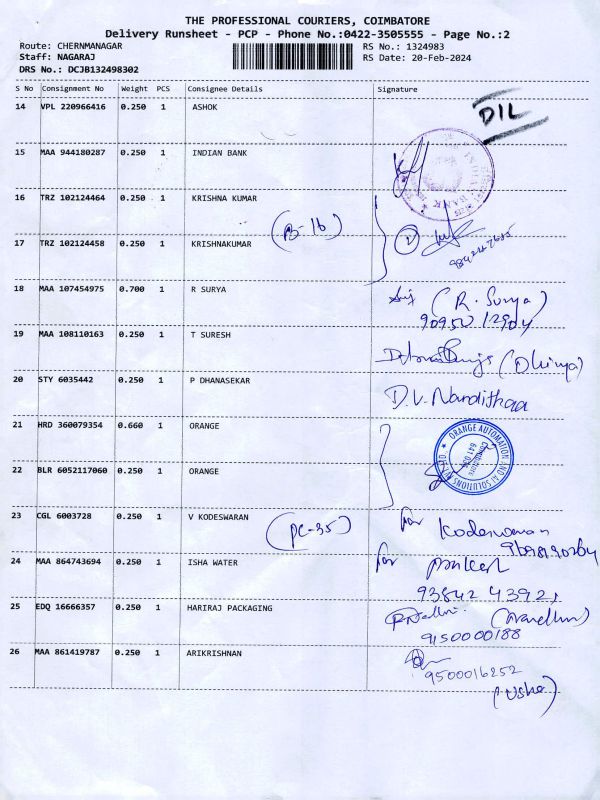 THE PROFESSIONAL COURIERS, COIMBATORE
Delivery Runsheet - PCP - Phone No.:0422-3505555 - Page No.:2
Route: CHERNMANAGAR RS No.: 1324983
Staff: NAGARAJ RS Date: 20-Feb-2024
DRS No.: DCJB132498302
S No Consignment No Weight PCS Consignee Details Signature
14 VPL 220966416 0.250 1 ASHOK
DIL
15 MAA 944180287 0.250 1 INDIAN BANK
16 TRZ 102124464 0.250 1 KRISHNA KUMAR
(B-16)
17 TRZ 102124458 0.250 1 KRISHNAKUMAR
2
18 MAA 107454975 0.700 1 R SURYA
(R. Surya)
90950 12904
19 MAA 108110163 0.250 1 T SURESH
(Dhivya)
20 STY 6035442 0.250 1 P DHANASEKAR
D.V. Nandithaa
21 HRD 360079354 0.660 1 ORANGE
ORANGE AUTOMATION AND AI SOLUTIONS
22 BLR 6052117060 0.250 1 ORANGE
23 CGL 6003728 0.250 1 V KODESWARAN
(PC-35)
for Kodeswaran
24 MAA 864743694 0.250 1 ISHA WATER
for
93842 43921
25 EDQ 16666357 0.250 1 HARIRAJ PACKAGING
9150000188
26 MAA 861419787 0.250 1 ARIKRISHNAN
9500016252
(Usha)